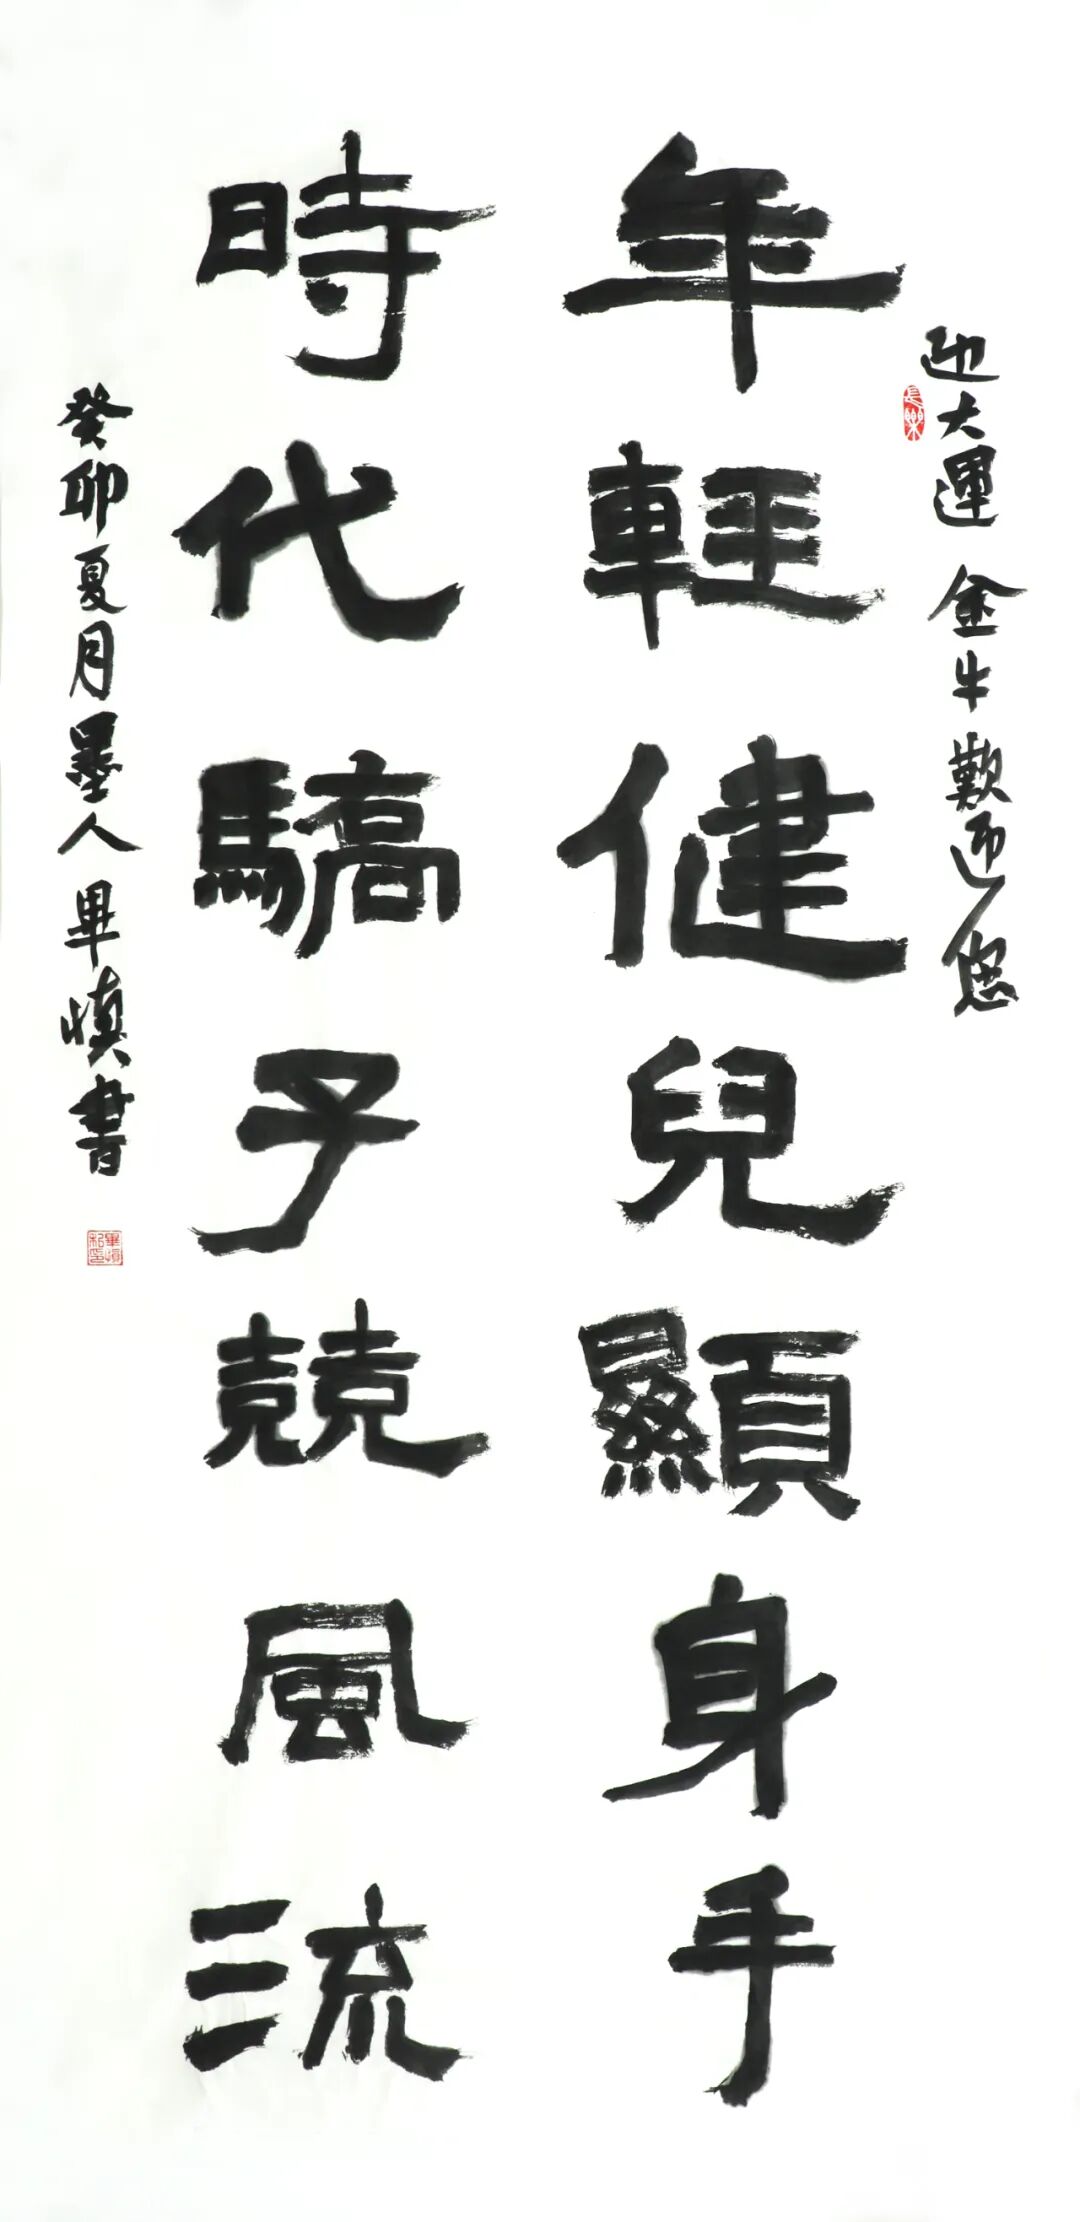 迎大運 金牛歡迎您
年輕健兒顯身手
時代驕子競風流
癸卯夏月墨人畢慎書
長樂
畢慎私印